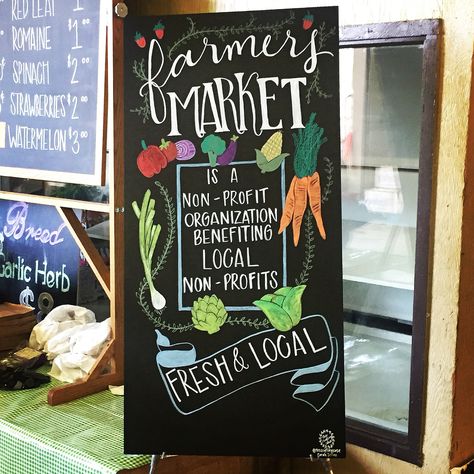 RED LEAF $
ROMAINE $1
SPINACH $2
STRAWBERRIES $2
WATERMELON $3.00
Bread
Garlic Herb
$
farmers
MARKET
IS A
NON-PROFIT
ORGANIZATION
BENEFITING
LOCAL
NON-PROFITS
FRESH & LOCAL